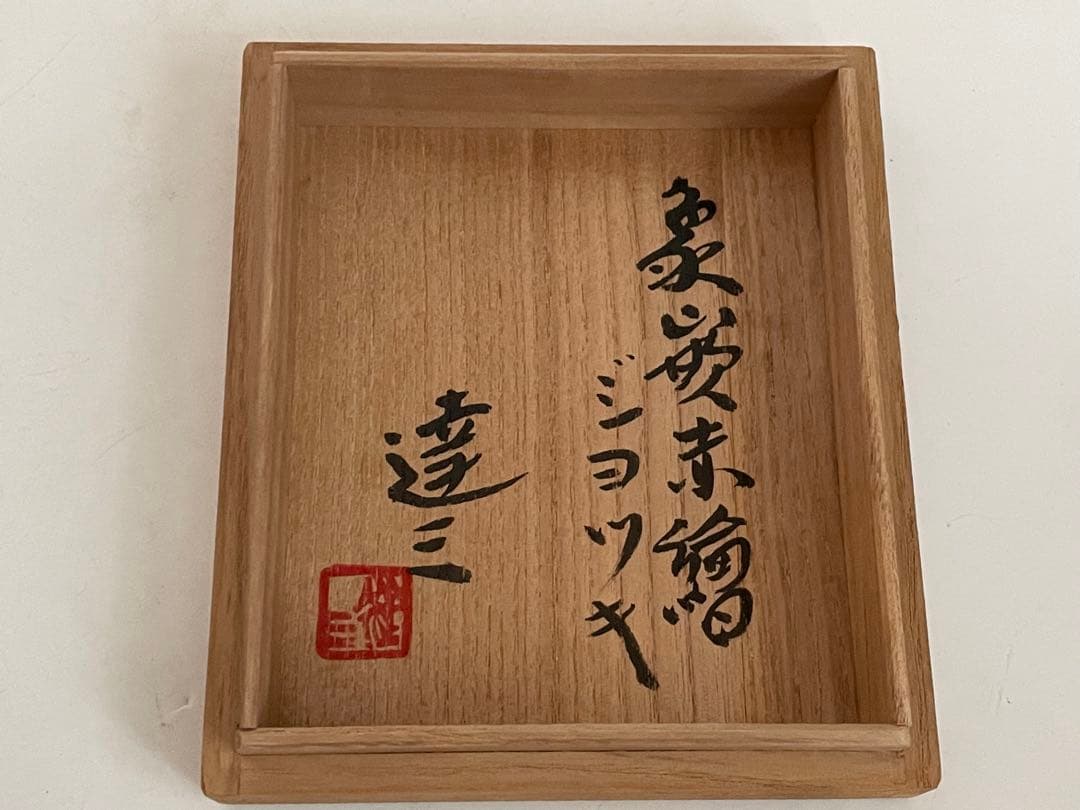 象嵌赤繪
ジョッキ
達三